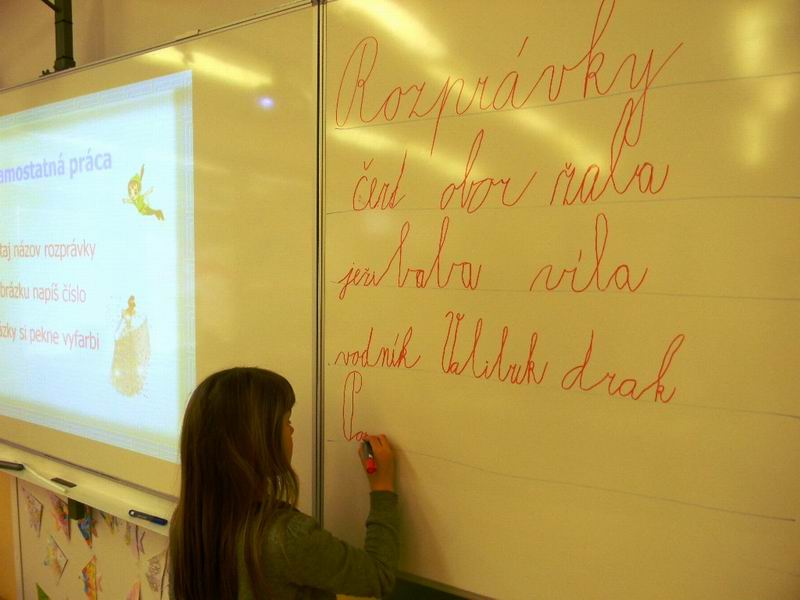 amostatná práca
taj názov rozprávky
brázku napíš číslo
ázky si pekne vyfarbi
Rozprávky
čert obor žaba
jezibaba víla
vodník Valibuk drak
Pa